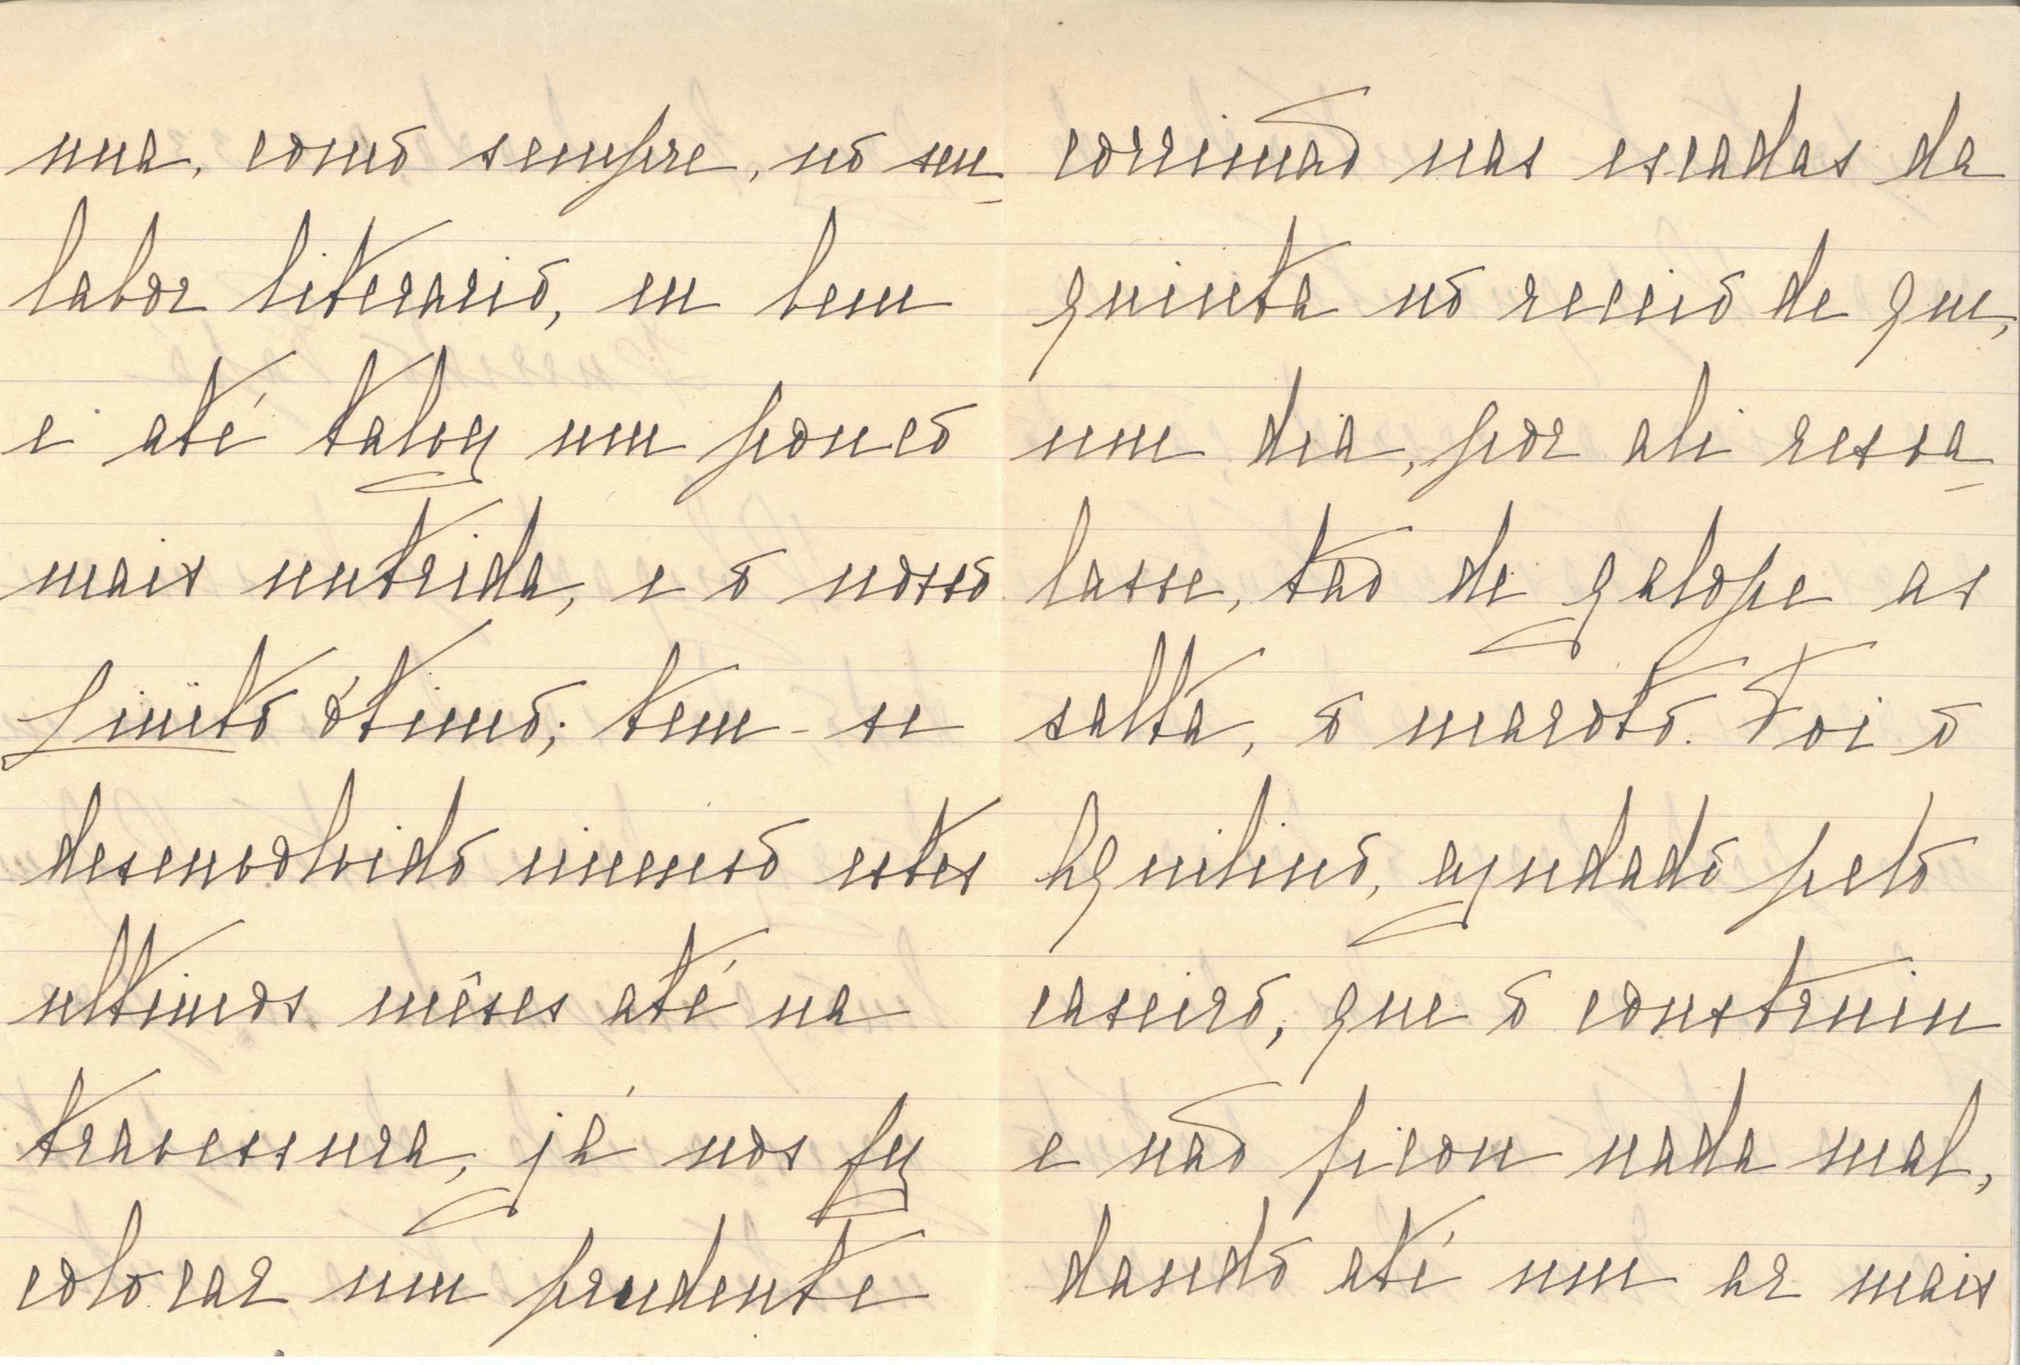 nua, como sempre, no seu
labor literario, eu bem
e até talvez um pouco
mais nutrida, e o nosso
Luisito ótimo; tem-se
desenvolvido imenso estes
ultimos mêses até na
travessura, já nos fez
colocar um prudente
corrimão nas escadas da
quinta no receio de que,
um dia, por ali resva-
lasse, tão de galope as
salta, o maroto. Foi o
Aquilino, ajudado pelo
caseiro, que o construiu
e não ficou nada mal,
dando até um ar mais